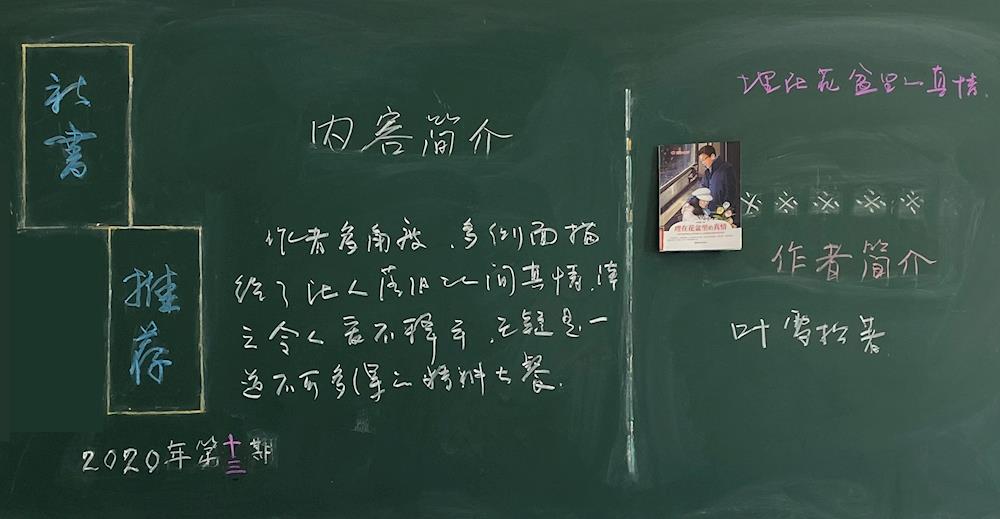 新书
推荐
2020年第十三期
内容简介
作者多角度、多侧面描
绘了让人落泪的人间真情,读
之令人爱不释手,无疑是一
道不可多得的精神大餐.
埋在花盆里的真情.
埋在花盆里的真情
※※※※※
作者简介
叶雪松著